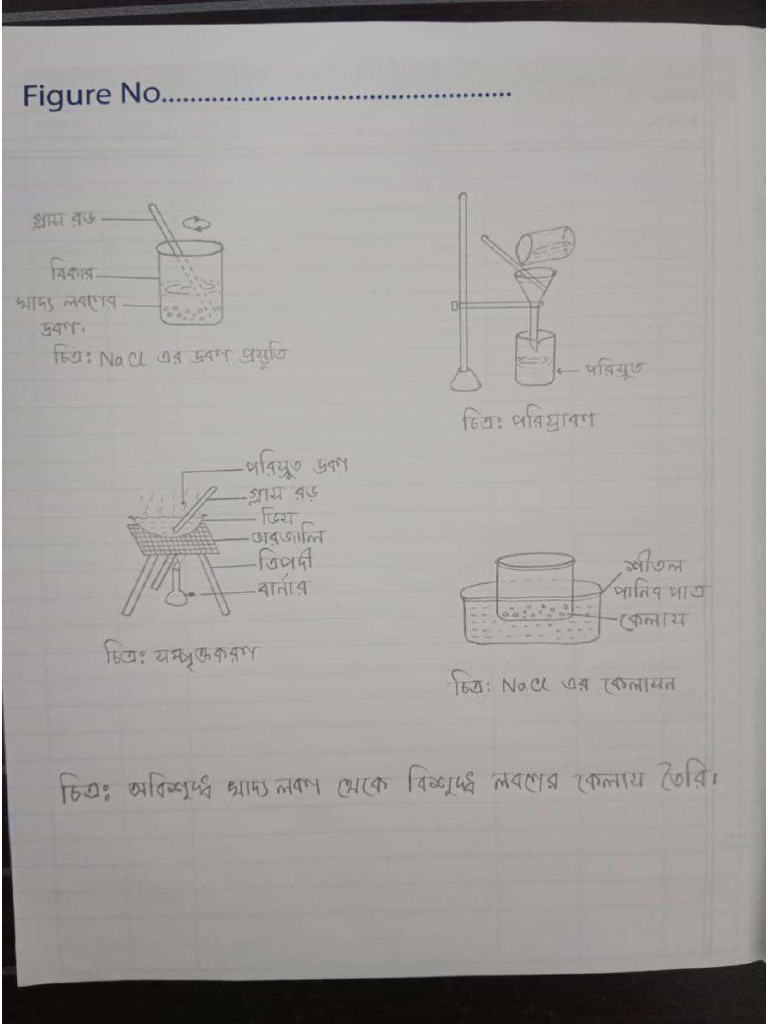 Figure No...............................................
গ্লাস রড
বিকার
খাদ্য লবণের
দ্রবণ।
চিত্র: NaCl এর দ্রবণ প্রস্তুতি
পরিস্রুত
চিত্র: পরিস্রাবণ
পরিস্রুত দ্রবণ
গ্লাস রড়
ডিস
তারজালি
ত্রিপদী
বার্নার
চিত্র: সম্পৃক্তকরণ
শীতল
পানির পাত্র
কেলাস
চিত্র: NaCl এর কেলাসন
চিত্র: অবিশুদ্ধ খাদ্য লবণ থেকে বিশুদ্ধ লবণের কেলাস তৈরি।